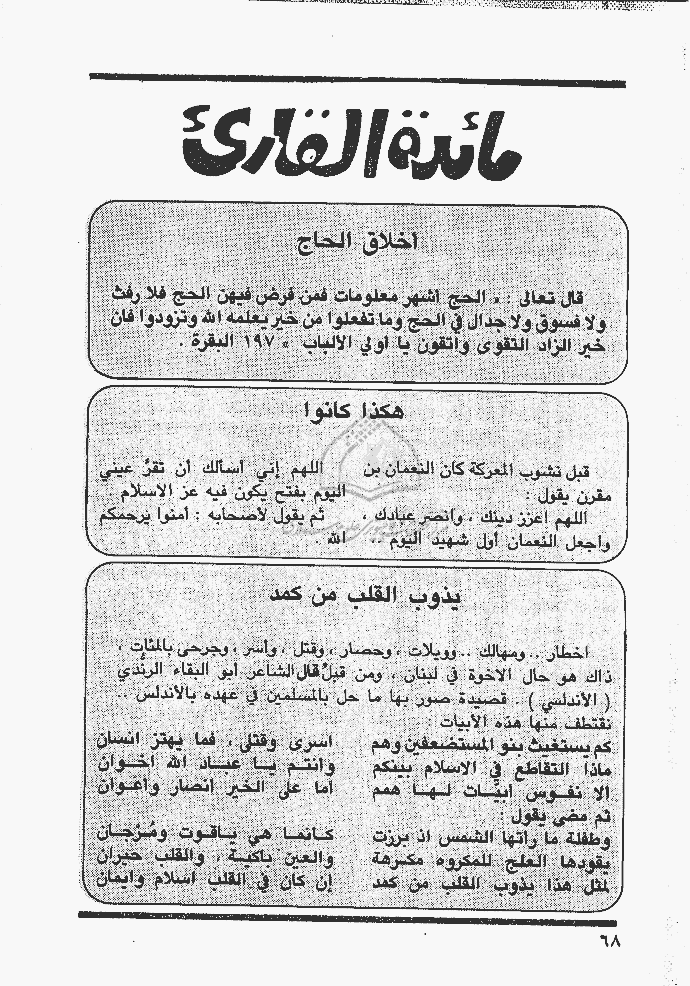 مائدة القارئ
أخلاق الحاج
قال تعالى : « الحج أشهر معلومات فمن فرض فيهن الحج فلا رفث
ولا فسوق ولا جدال في الحج وما تفعلوا من خير يعلمه الله وتزودوا فان
خير الزاد التقوى واتقون يا أولي الألباب » ١٩٧ البقرة .
هكذا كانوا
قبل نشوب المعركة كان النعمان بن
مقرن يقول :
اللهم اعزز دينك ، وانصر عبادك ،
واجعل النعمان أول شهيد اليوم ..
اللهم إني أسألك أن تقرُ عيني
اليوم بفتح يكون فيه عز الاسلام .
ثم يقول لأصحابه : أمنوا يرحمكم
الله .
يذوب القلب من كمد
أخطار .. ومهالك .. وويلات ، وحصار ، وقتل ، وأسر ، وجرحى بالمئات ،
ذاك هو حال الاخوة في لبنان ، ومن قبلُ قال الشاعر أبو البقاء الرنُدي
( الأندلسي ) . قصيدة صور بها ما حل بالمسلمين في عهده بالأندلس ..
نقتطف منها هذه الأبيات :
كم يستغيث بنو المستضعفين وهم أسرى وقتلى ، فما يهتز انسان
ماذا التقاطع في الاسلام بينكم وانتم يا عباد الله اخوان
ألا نفوس أبيّات لها همم أما على الخير أنصار وأعوان
ثم مضى يقول :
وطفلة ما رأتها الشمس اذ برزت كأنما هي ياقوت ومُرْجان
يقودها العلج للمكروه مكرهة والعين باكية ، والقلب حيران
لمثل هذا يذوب القلب من كمد إن كان في القلب اسلام وايمان
٦٨